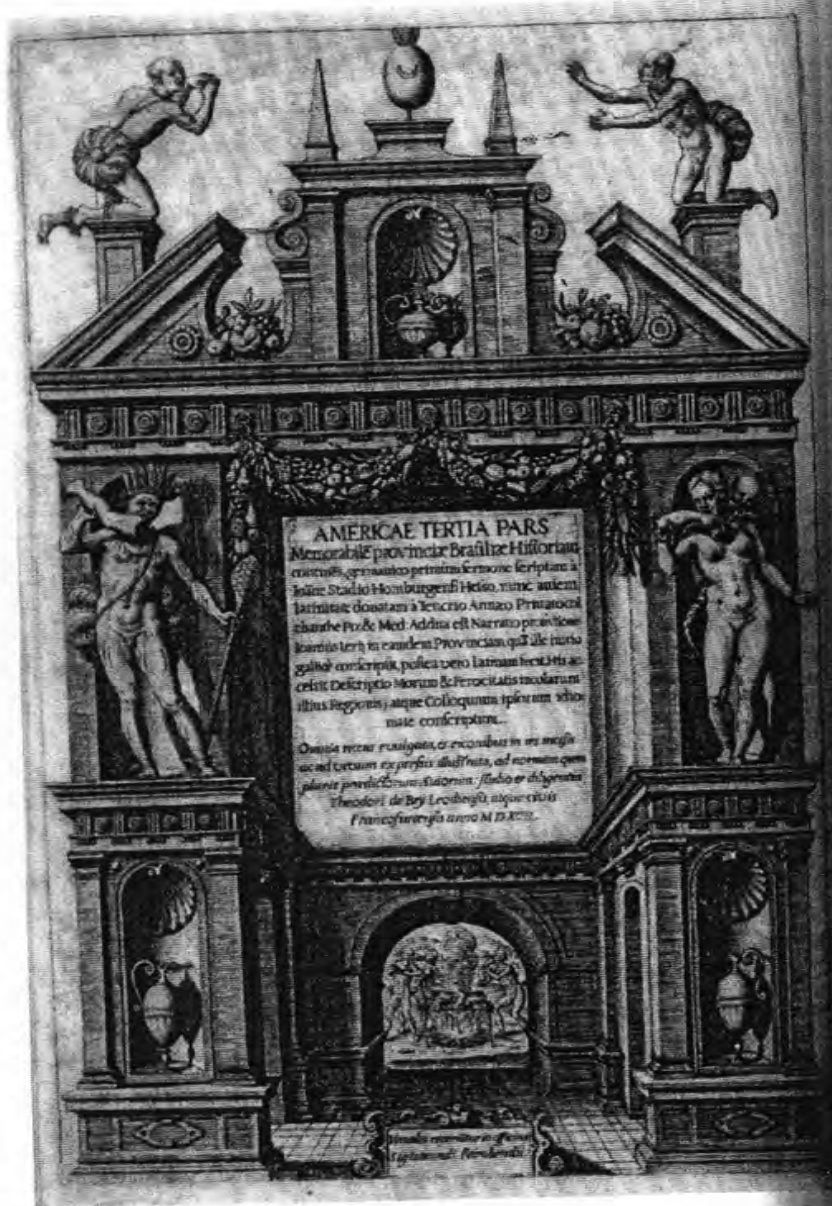 AMERICAE TERTIA PARS
Memorabilē provinciæ Brasiliæ Historiam
continēs, germanico primùm sermone scriptam à
Ioāne Stadio Homburgensi Hesso, nunc autem
latinitate donatam à Teucrio Annæo Privato
Po: & Med: Addita est Narratio profectionis
Ioannis Lerij in eamdem Provinciam, quā ille initio
gallicè conscripsit, postea verò Latinam fecit. His ac-
cessit Descriptio Morum & Ferocitatis incolarum
illius Regionis, atque Colloquium ipsorum idio-
mate conscriptum.
Omnia recens evulgata, & eiconibus in æs incisis
ac ad vivum expressis illustrata, ad
studio & diligentia
Theodori de Bry Leodiensis, atque civis
Francofurtensis anno M D XCII.
Venales reperiuntur in officina
Sigismundi Feirabendii